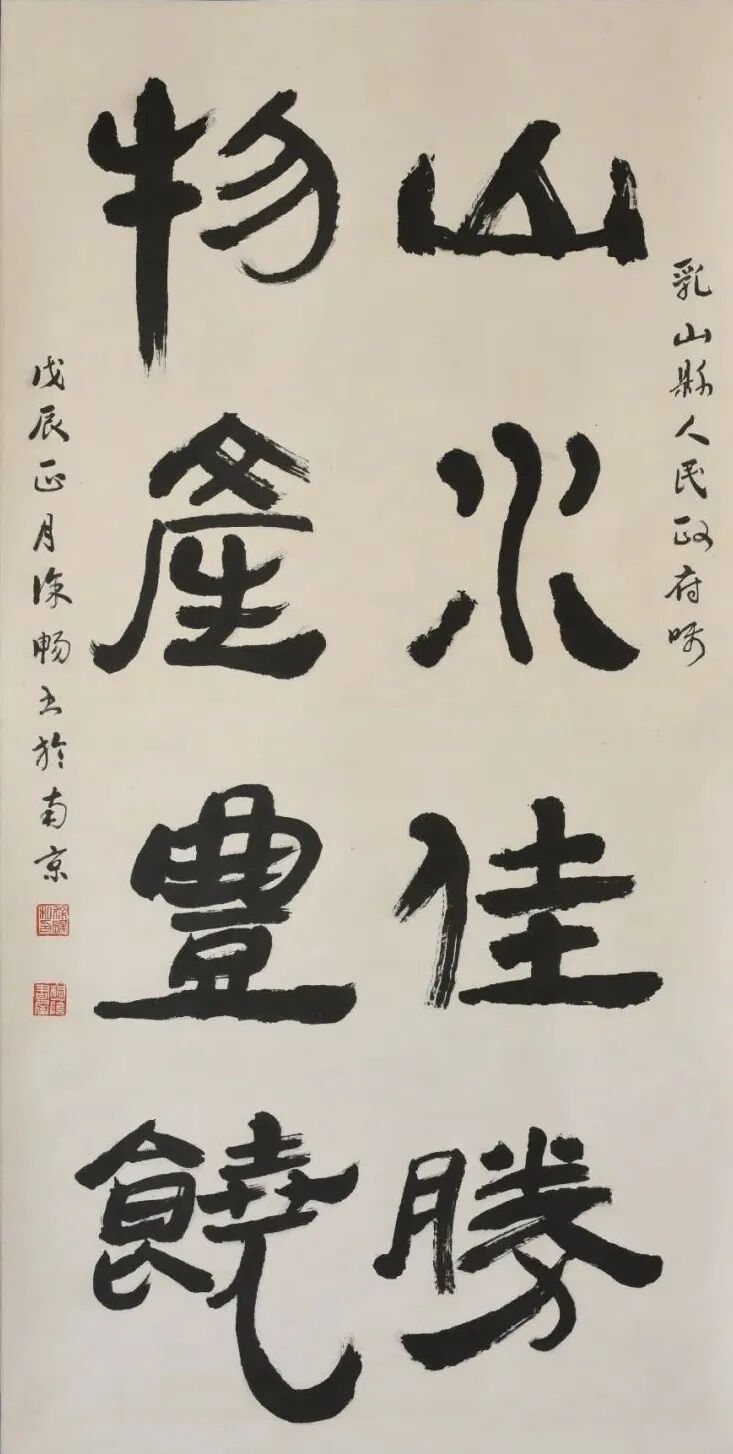 乳山縣人民政府嘱
山水佳勝
物產豐饒
戊辰正月徐暢书於南京